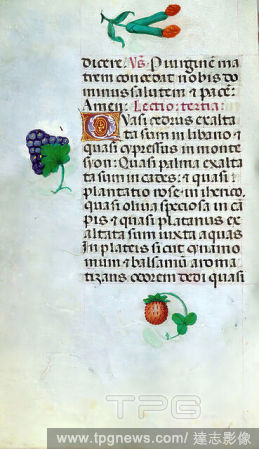 dicere. Vs. P virginē ma
trem concedit nobis do
minus salutem et pacē:
Amen: Lectio: tertia:
Quasi cedrus exalta
ta sum in libano et
quasi cypressus in monte
sion: Quasi palma exalta
ta sum in cades: et quasi
plantatio rose in iherico,
quasi oliua speciosa in cā
pis et quasi platanus ex
altata sum iuxta aquas
In plateis sicut cynamo
mum et balsamū aroma
tizans odorem dedi quasi
TPG
www.tpgnews.com/達志影像